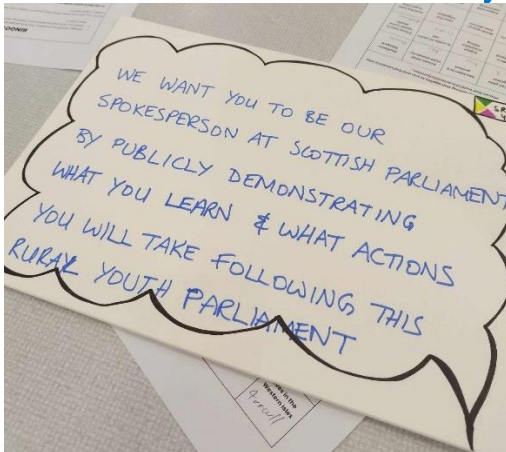 WE WANT YOU TO BE OUR
SPOKESPERSON AT SCOTTISH PARLIAMENT
BY PUBLICLY DEMONSTRATING
WHAT YOU LEARN & WHAT ACTIONS
YOU WILL TAKE FOLLOWING THIS
RURAL YOUTH PARLIAMENT
in the
Western Isles